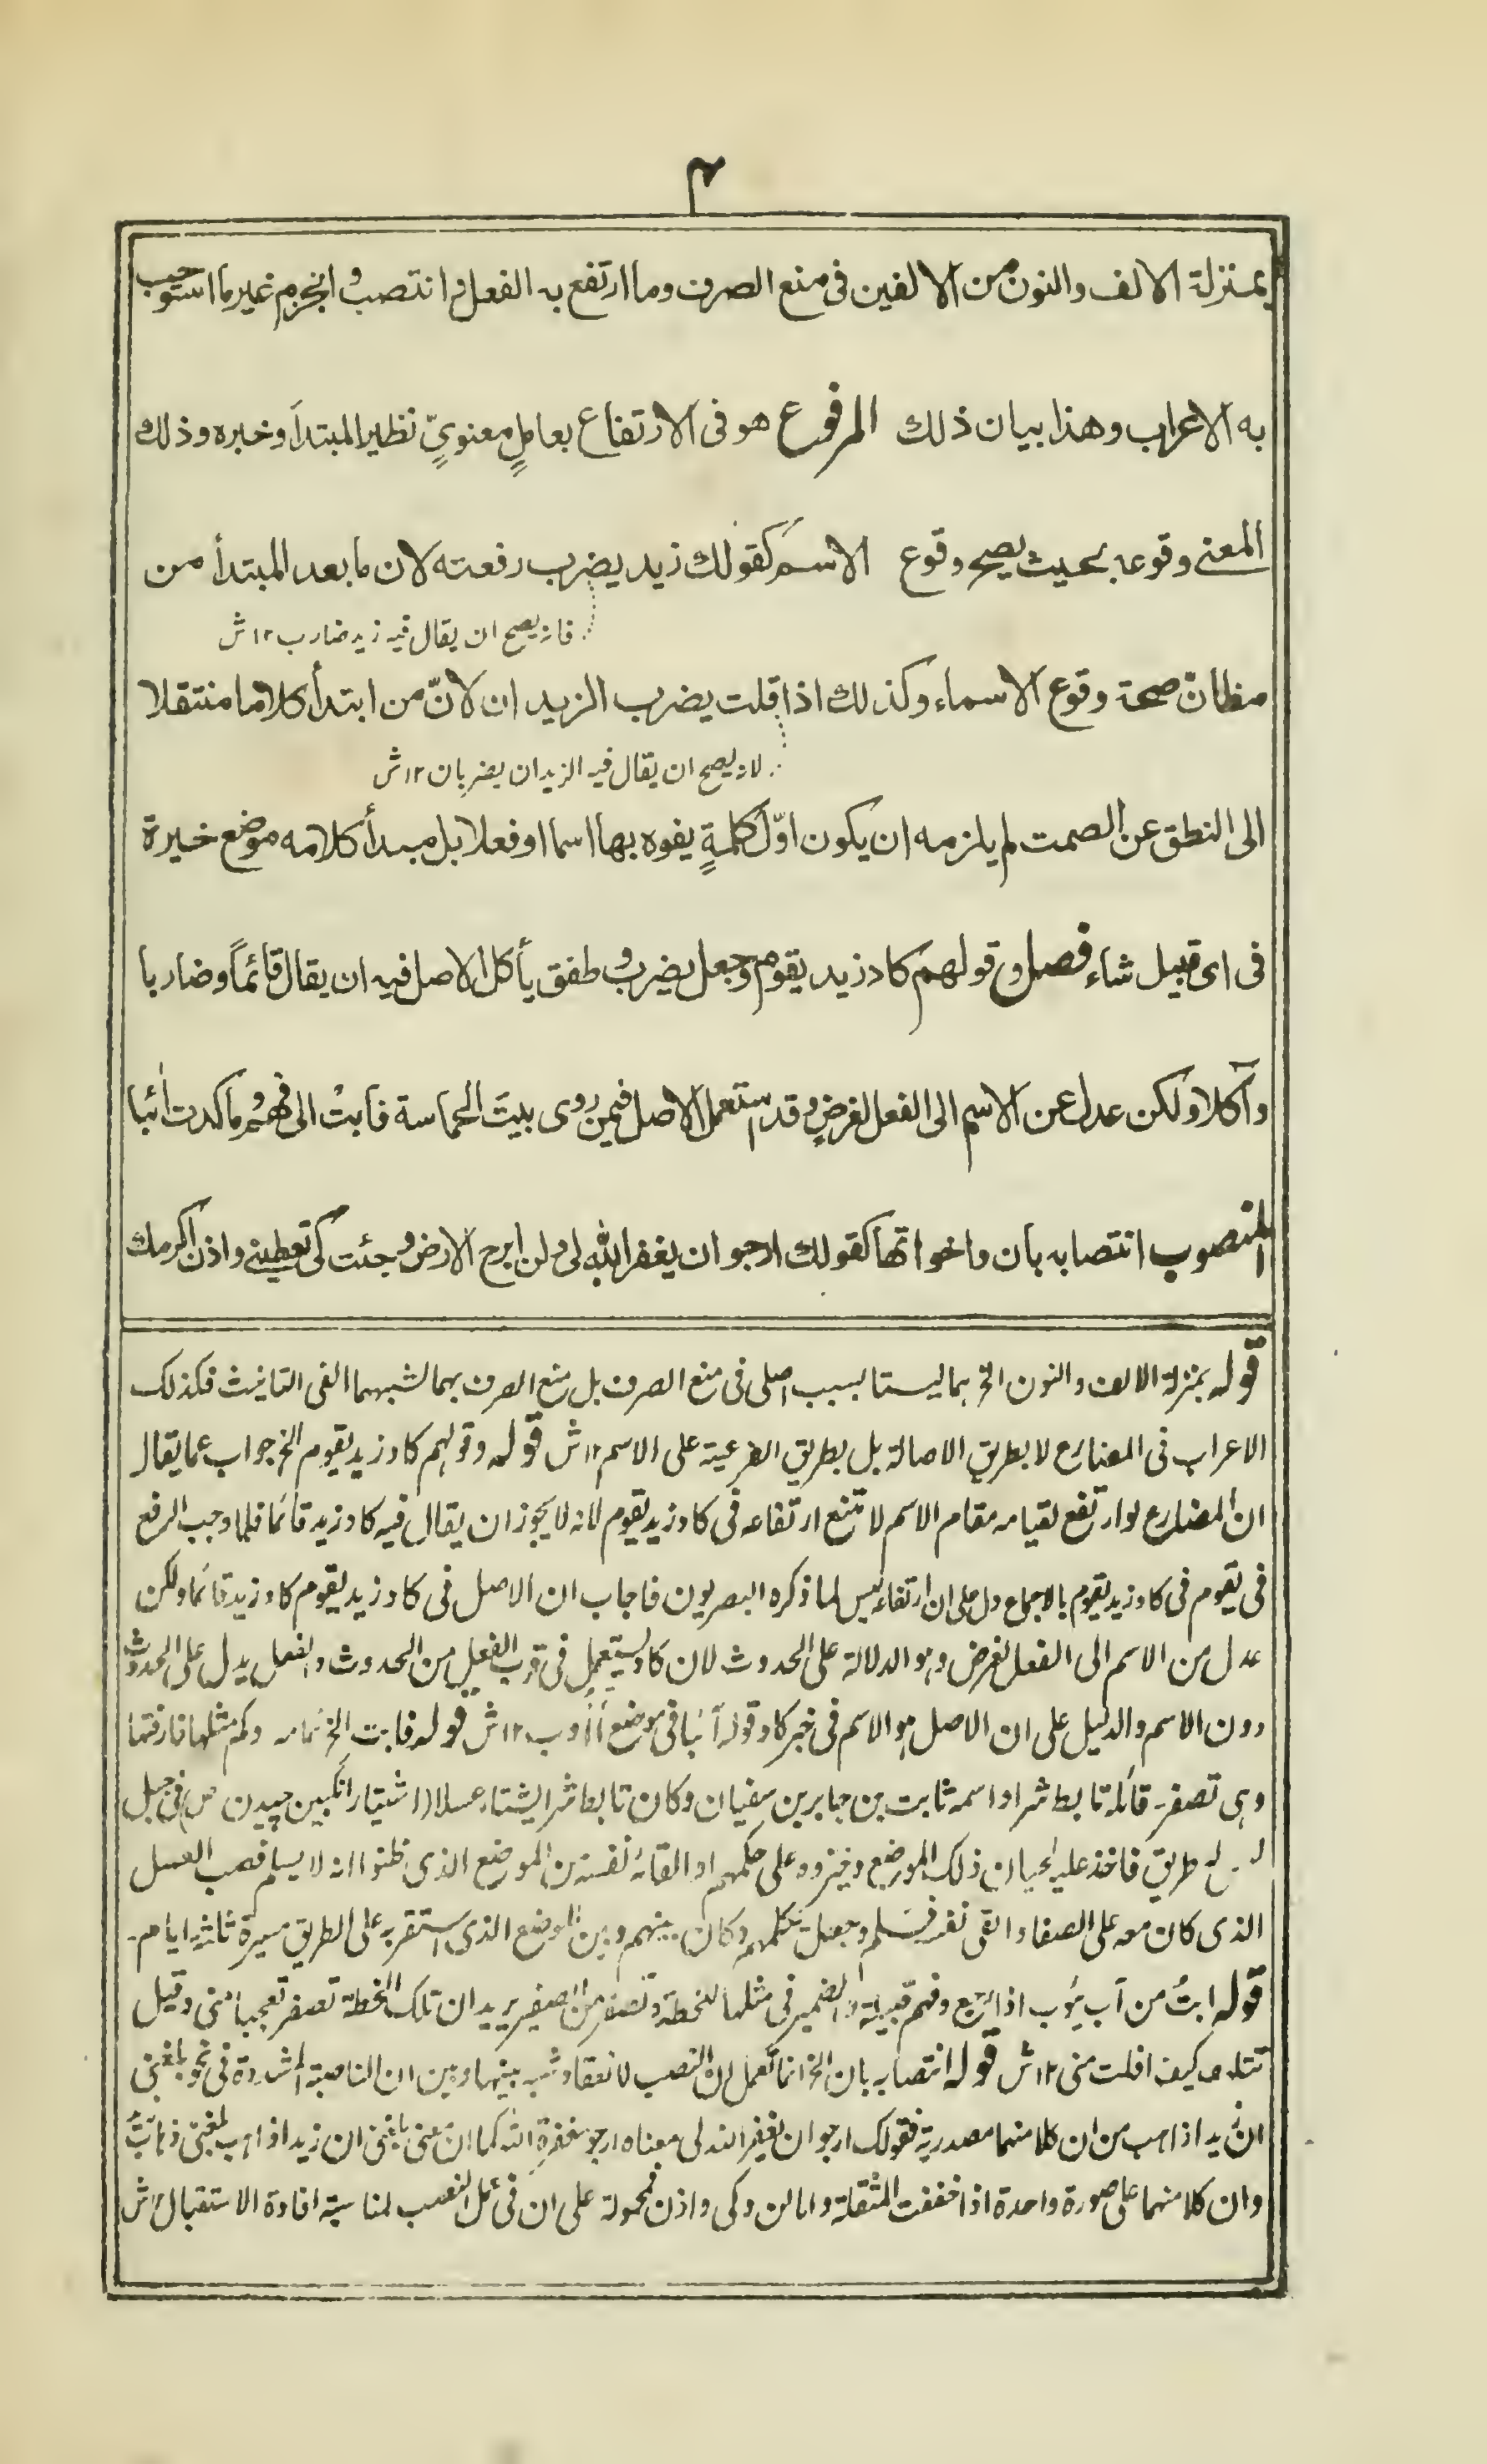 ٣
بمنزلة الالف والنون من الالفين فى منع الصرف وما ارتفع به الفعل وانتصب وانجزم غير ما استوجب
به الاعراب وهذا بيان ذلك المرفوع هو فى الارتفاع بعاملٍ معنوىٍّ نظير المبتدأ وخبره وذلك
المعنى وقوعه بحيث يصح وقوع الاسم كقولك زيد يضرب رفعته لان ما بعد المبتدأ من
فانه يصح ان يقال فيه زيد ضارب ١٢ ش
مظان صحة وقوع الاسماء وكذلك اذا قلت يضرب الزيدان لانّ من ابتدأ كلاما منتقلا
لانه يصح ان يقال فيه الزيدان يضربان ١٢ ش
الى النطق عن الصمت لم يلزمه ان يكون اوّل كلمةٍ يفوه بها اسما او فعلا بل مبدأ كلامه موضع خيرة
فى اى قبيل شاء فصل وقولهم كاد زيد يقوم وجعل يضرب وطفق يأكل الاصل فيه ان يقال قائماً وضاربا
وآكلا ولكن عدل عن الاسم الى الفعل لغرض وقد استعمل الاصل فيمن روى بيت الحماسة فابت الى فهم وما كدت آئبا
المنصوب انتصابه بان واخواتها كقولك ارجو ان يغفر الله لى ولن ابرح الارض وجئت كى تعطينى واذن اكرمك
قوله بمنزلة الالف والنون الخ هما ليستا بسبب اصلى فى منع الصرف بل منع الصرف بهما لشبههما الفى التانيث فكذلك
الاعراب فى المضارع لا بطريق الاصالة بل بطريق الفرعية على الاسم ١٢ ش قوله وقولهم كاد زيد يقوم الخ جواب عما يقال
ان المضارع لو ارتفع لقيامه مقام الاسم لامتنع ارتفاعه فى كاد زيد يقوم لانه لا يجوز ان يقال فيه كاد زيد قائما فلما وجب الرفع
فى يقوم فى كاد زيد يقوم بالاجماع دل على ان ارتفاعه ليس لما ذكره البصريون فاجاب ان الاصل فى كاد زيد يقوم كاد زيد قائما ولكن
عدل من الاسم الى الفعل لغرض وهو الدلالة على الحدوث لان كاد يستعمل فى قرب الفعل من الحدوث والفعل يدل على الحدوث
دون الاسم والدليل على ان الاصل هو الاسم فى خبر كاد قوله آئبا فى موضع أؤوب ١٢ ش قوله فابت الخ تمامه وكم مثلها فارقتها
وهى تصفر قائله تابط شرا واسمه ثابت بن جابر بن سفيان وكان تابط شرا يشتار عسلا (اشتيار انگبين چيدن ص) فى جبل
طريق فاخذ عليه لحيان ذلك الموضع وخيروه على حكمهم او القائه نفسه من الموضع الذى ظنوا انه لا يسلم فصب العسل
الذى كان معه على الصفا والقى نفسه فسلم وجعل يكلمهم وكان بينهم وبين الموضع الذى استقر به على الطريق مسيرة ثلثة ايام
قوله ابتُ من آب يؤب اذا رجع وفهم قبيلة والضمير فى مثلها للخطة وتصفر من الصفير يريد ان تلك الخطة تصفر تعجبا منى وقيل
كيف افلت منى ١٢ ش قوله انتصابه بان الخ انما تعمل ان النصب لانعقاد شبه بينها وبين ان الناصبة المشددة فى نحو بلغنى
ان زيدا ذاهب من ان كلا منهما مصدرية فقولك ارجو ان يغفر الله لى معناه ارجو مغفرة الله كما ان معنى بلغنى ان زيدا ذاهب بلغنى ذهابه
وان كلا منهما على صورة واحدة اذا خففت المثقلة واما لن وكى واذن فمحمولة على ان فى عمل النصب لمناسبة افادة الاستقبال ١٢ ش